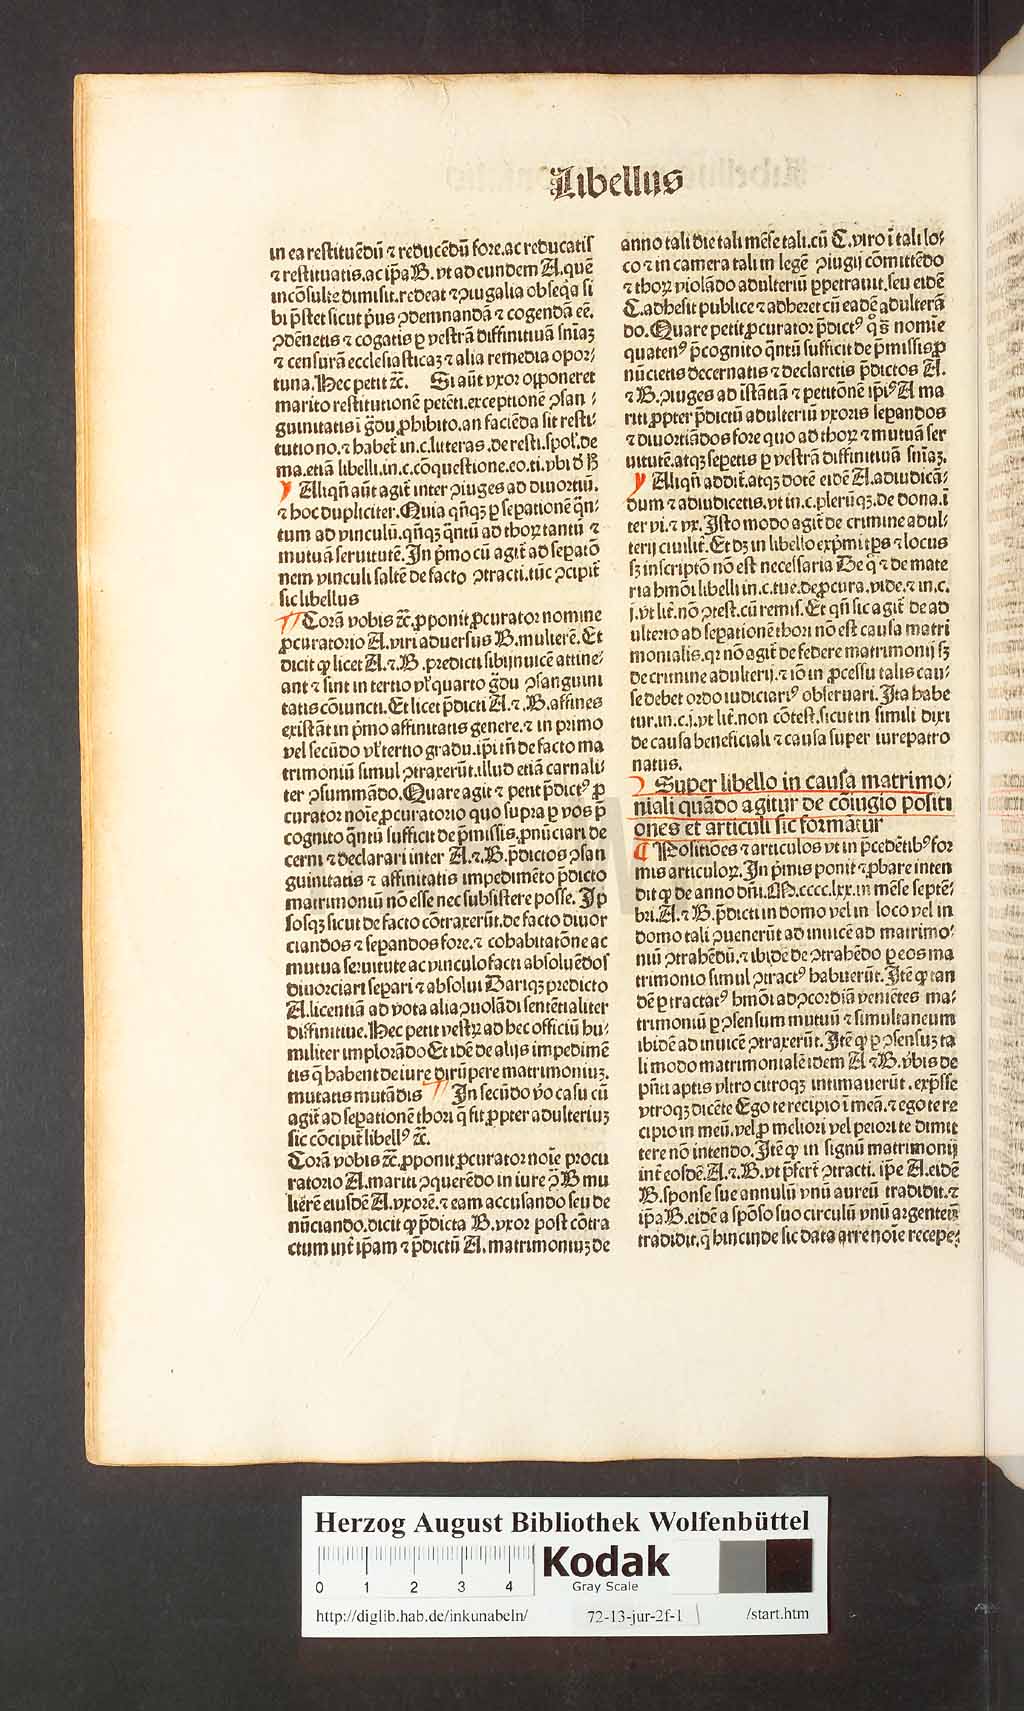 Libellus
in ea restituēdū ⁊ reducēdū fore.ac reducatis
⁊ restituatis.ac ip̄a B. vt ad eundem A.quē
incōsulte dimisit.redeat ⁊ ꝯiugalia obseq̄a si
bi p̄stet sicut pͥus ꝯdemnandā ⁊ cogendā eē.
ꝯdēnetis ⁊ cogatis ꝑ vestrā diffinitiuā sn̄iaꝫ
⁊ censurā ecclesiasticaꝫ ⁊ alia remedia opor⸗
tuna.Hec petit ⁊c̄. Si aūt vxor opponeret
marito restitutionē petēti.exceptionē ꝯsan⸗
guinitatis ī g̈du ꝓhibito.an faciēda sit resti⸗
tutio no.⁊ habet̄ in.c.litteras.de resti.spol̓.de
ma.etiā libelli.in.c.cōquestione.eo.ti.vbi d̄ ꝧ
Aliqn̄ aūt agit̄ inter ꝯiuges ad diuortiū.
⁊ hoc dupliciter.Quia qn̄qꝫ ꝑ sepationē qͣn⸗
tum ad vinculū.qn̄qꝫ qͣntū ad thoꝝ tantū ⁊
mutuā seruitutē.In pͥmo cū agit̄ ad sepatō
nem vinculi saltē de facto ꝯtracti.tūc ꝯcipit̄
sic libellus
Corā vobis ⁊c̄.ꝓponit ꝓcurator nomine
ꝓcuratorio A.viri aduersus B.mulierē. Et
dicit ꝙ licet A.⁊ B.predicti sibijnuicē attine⸗
ant ⁊ sint in tertio vl̓ quarto g̈du ꝯsanguini
tatis cōiuncti.Et licet p̄dicti A.⁊.B.affines
existāt in pͥmo affinitatis genere.⁊ in primo
vel secūdo vl̓ tertio gradu.ip̄i tn̄ de facto ma
trimoniū simul ꝯtraxerūt.illud etiā carnali⸗
ter ꝯsummādo.Quare agit ⁊ petit p̄dictꝰ ꝓ
curator noīe ꝓcuratorio quo supra ꝑ vos p̄
cognito qͣntū sufficit de p̄missis.ꝓnūciari de
cerni ⁊ declarari inter A.⁊.B.p̄dictos ꝯsan
guinitatis ⁊ affinitatis impedimēto p̄dicto
matrimoniū nō esse nec subsistere posse. Ip
sosqꝫ sicut de facto cōtraxerūt.de facto diuor
ciandos ⁊ sepandos fore.⁊ cohabitatōne ac
mutua seruitute ac vinculo facti absoluēdos
diuorciari separi ⁊ absolui Dariqꝫ predicto
A.licentiā ad vota alia ꝯuolādi sentētialiter
diffinitiue.Hec petit vestꝝ ad hec officiū hu⸗
militer implorādo Et idē de alijs impedimē
tis q̄ habent de iure dirūpere matrimoniuꝫ.
mutatis mutādis In secūdo v̊o casu cū
agit̄ ad sepationē thori q̄ fit ꝓpter adulteriuꝫ
sic cōcipit̄ libellꝰ ⁊c̄.
Corā vobis ⁊c̄.ꝓponit ꝓcurator noīe procu
ratorio A.mariti ꝯquerēdo in iure ꝯ̄ B mu
lierē eiusdē A.vxorē.⁊ eam accusando seu de
nūciando.dicit ꝙ p̄dicta B.vxor post cōtra
ctum int̄ ip̄am ⁊ p̄dictū A.matrimoniuꝫ de
anno tali die tali mēse tali.cū C.viro ī tali lo⸗
co ⁊ in camera tali in legē ꝯiugij cōmittēdo
⁊ thoꝝ violādo adulteriū ꝑpetrauit.seu eidē
C.adhesit publice ⁊ adheret cū eadē adulterā
do.Quare petit ꝓcurator p̄dictꝰ q̊ s̄ nomīe
quatenꝰ p̄cognito qͣntū sufficit de p̄missis ꝓ
nūcietis decernatis ⁊ declaretis p̄dictos A.
⁊ B.ꝯiuges ad īstātiā ⁊ petitōnē ip̄iꝰ A ma
riti.ꝓpter p̄dictū adulteriū vxoris sepandos
⁊ diuortiādos fore quo ad thoꝝ ⁊ mutuā ser
uitutē.atqꝫ sepetis ꝑ vestrā diffinitiuā sn̄iaꝫ.
Aliqn̄ addit̄.atqꝫ dotē eidē A.adiudicā⸗
dum ⁊ adiudicetis.vt in.c.plerūqꝫ.de dona.ī
ter vi.⁊ vx.Isto modo agit̄ de crimine adul⸗
terij ciuilit̄.Et dꝫ in libello exp̄mi tp̄s ⁊ locus
sꝫ inscriptō nō est necessaria De qͦ ⁊ de mate
ria hmōi libelli in.c.tue.de ꝓcura.vide.⁊ in.c.
j.vt lit̄.nō ꝯtest.cū remis.Et qn̄ sic agit̄ de ad
ulterio ad sepationē thori nō est causa matri
monialis.qꝛ nō agit̄ de federe matrimonij sꝫ
de crimine adulterij.⁊ iō in ꝓcessu talis cau⸗
se debet ordo iudiciariꝰ obseruari.Ita habe
tur.in.c.j.vt lit̄.non cōtest.sicut in simili dixi
de causa beneficiali ⁊ causa super iurepatro
natus.
Super libello in causa matrimo⸗
niali quādo agitur de cōiugio positi
ones et articuli sic formātur
Positiōes ⁊ articulos vt in p̄cedētibꝰ for
mis articuloꝝ. In pͥmis ponit ⁊ ꝓbare inten
dit ꝙ de anno dn̄i.M.cccc.lxx.in mēse septē⸗
bri.A.⁊ B.p̄dicti in domo vel in loco vel in
domo tali ꝯuenerūt ad inuicē ad matrimo⸗
niū ꝯtrahēdū.⁊ ibidē de ꝯtrahēdo ꝑ eos ma
trimonio simul ꝯtractꝰ habuerūt. Itē ꝙ tan
dē ꝑ tractatꝰ hmōi ad ꝯcordiā veniētes ma⸗
trimoniū ꝑ ꝯsensum mutuū ⁊ simultaneum
ibidē ad inuicē ꝯtraxerūt. Itē ꝙ ꝑ ꝯsensuꝫ ta
li modo matrimonialē idem A ⁊ B.v̓bis de
pn̄ti aptis vltro citroqꝫ intimauerūt.exp̄sse
vtroqꝫ dicēte Ego te recipio ī meā.⁊ ego te re
cipio in meū.vel ꝓ meliori vel peiori te dimit
tere nō intendo. Itē ꝙ in signū matrimonij
int̄ eosdē.A.⁊.B.vt p̄fert̄ ꝯtracti. ip̄e A.eidē
B.sponse sue annulū vnū aureū tradidit.⁊
ip̄a B.eidē a spōso suo circulū vnū argenteū
tradidit.q̄ hincinde sic data arre noīe recepe⸗
Herzog August Bibliothek Wolfenbüttel
0 1 2 3 4
Kodak
Gray Scale
http://diglib.hab.de/inkunabeln/ 72-13-jur-2f-1 /start.htm